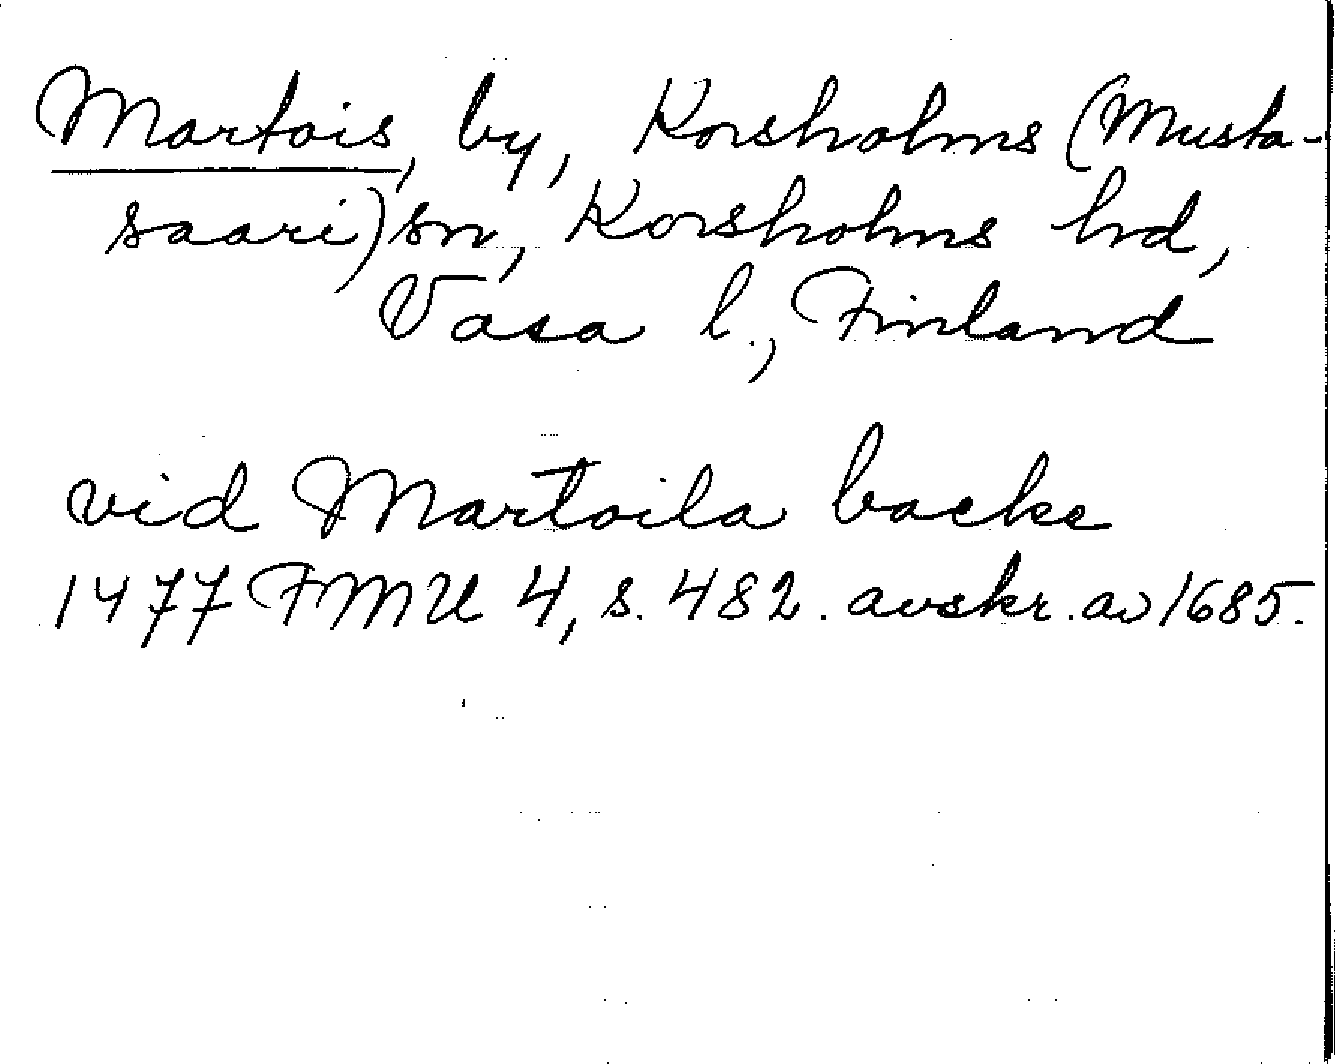 Martois, by, Korsholms (Musta-
saari) sn, Korsholms hd,
Vasa l., Finland
vid Martoila backe
1477 FMU 4, s. 482. avskr. av 1685.